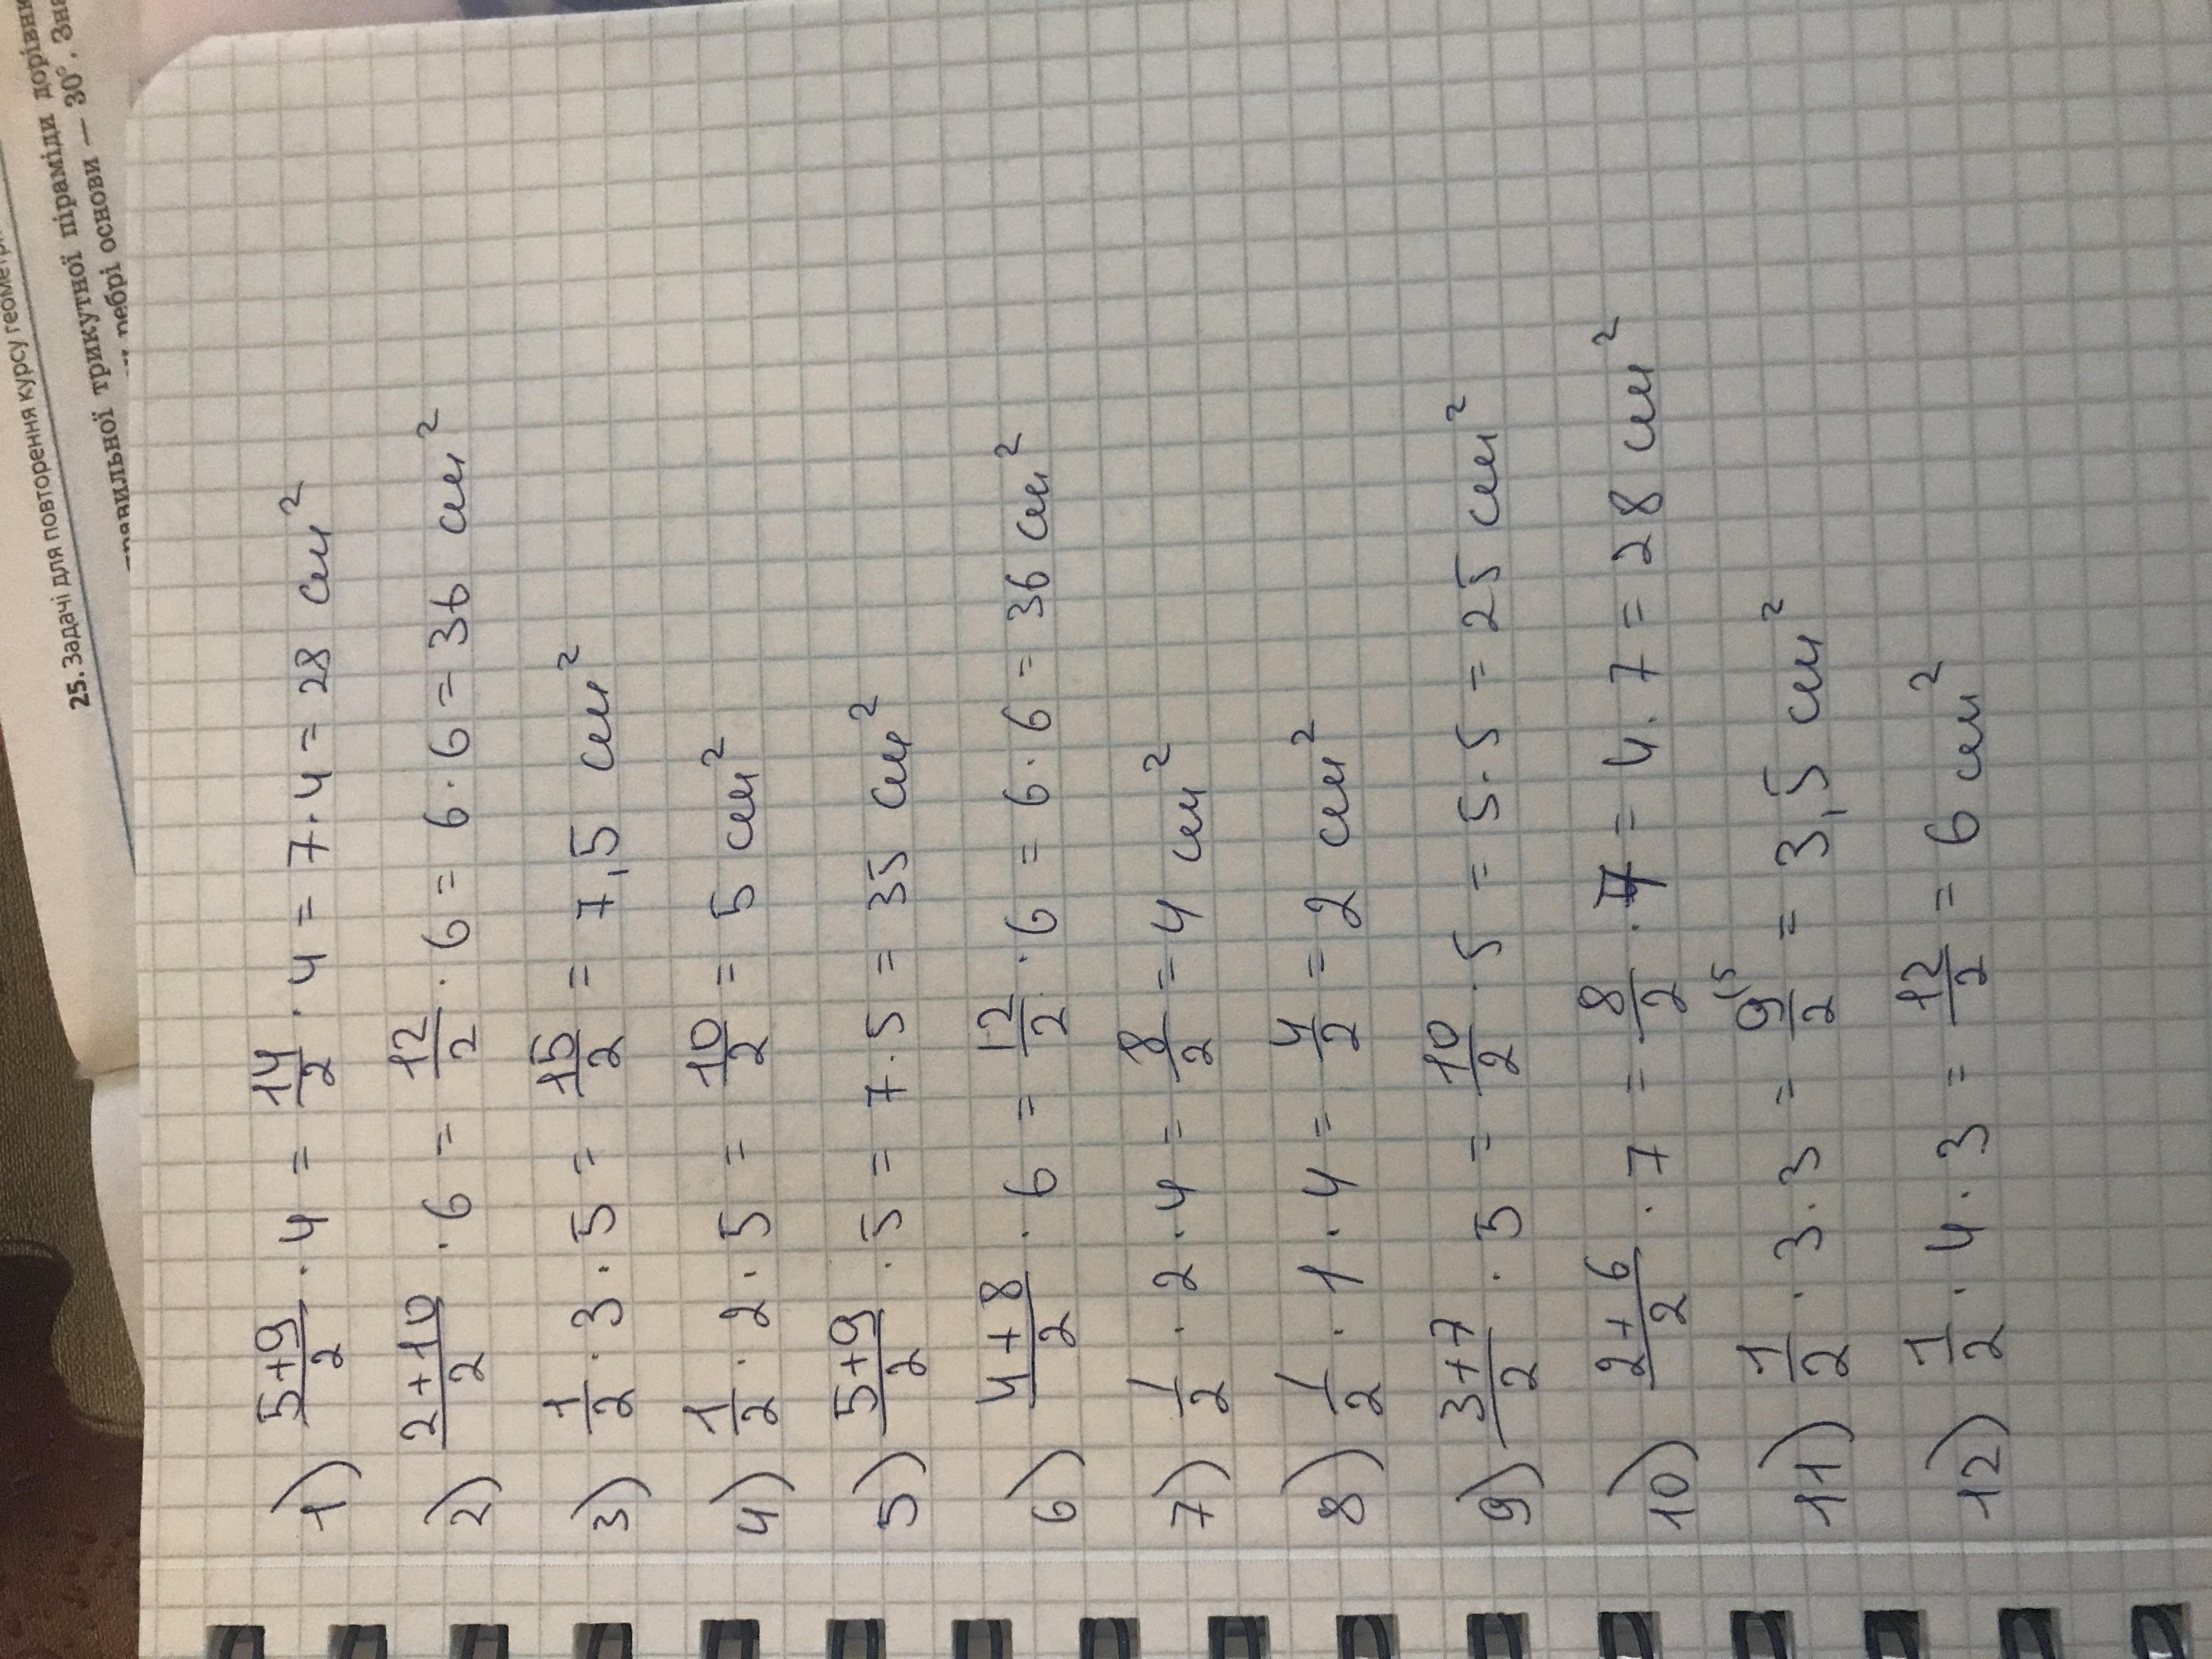 25. Задачі для повторення курсу
трикутної піраміди
ребрі основи — 30°.
1) \frac{5+9}{2} · 4 = \frac{14}{2} · 4 = 7 · 4 = 28 см²
2) \frac{2+10}{2} · 6 = \frac{12}{2} · 6 = 6 · 6 = 36 см²
3) \frac{1}{2} · 3 · 5 = \frac{15}{2} = 7,5 см²
4) \frac{1}{2} · 2 · 5 = \frac{10}{2} = 5 см²
5) \frac{5+9}{2} · 5 = 7 · 5 = 35 см²
6) \frac{4+8}{2} · 6 = \frac{12}{2} · 6 = 6 · 6 = 36 см²
7) \frac{1}{2} · 2 · 4 = \frac{8}{2} = 4 см²
8) \frac{1}{2} · 1 · 4 = \frac{4}{2} = 2 см²
9) \frac{3+7}{2} · 5 = \frac{10}{2} · 5 = 5 · 5 = 25 см²
10) \frac{2+6}{2} · 7 = \frac{8}{2} · 7 = 4 · 7 = 28 см²
11) \frac{1}{2} · 3 · 3 = \frac{9}{2} = 3,5 см²
12) \frac{1}{2} · 4 · 3 = \frac{12}{2} = 6 см²